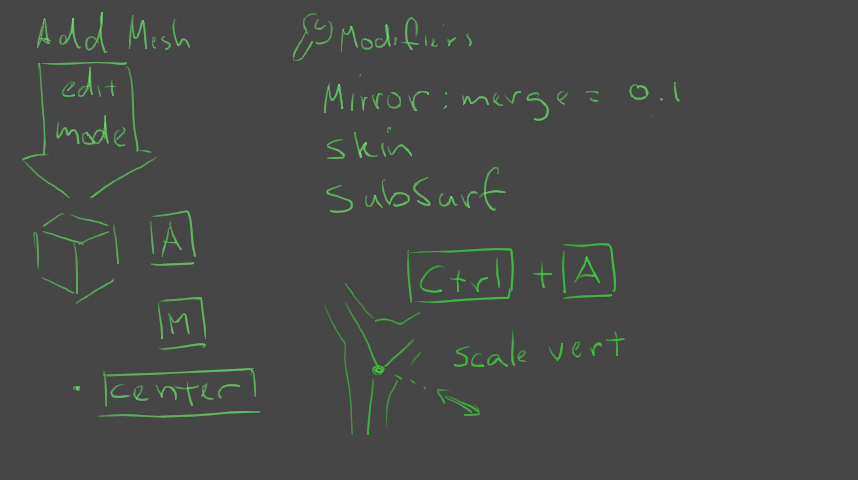 Add Mesh
edit
mode
A
M
center
Modifiers
Mirror: merge = 0.1
skin
SubSurf
Ctrl + A
scale vert